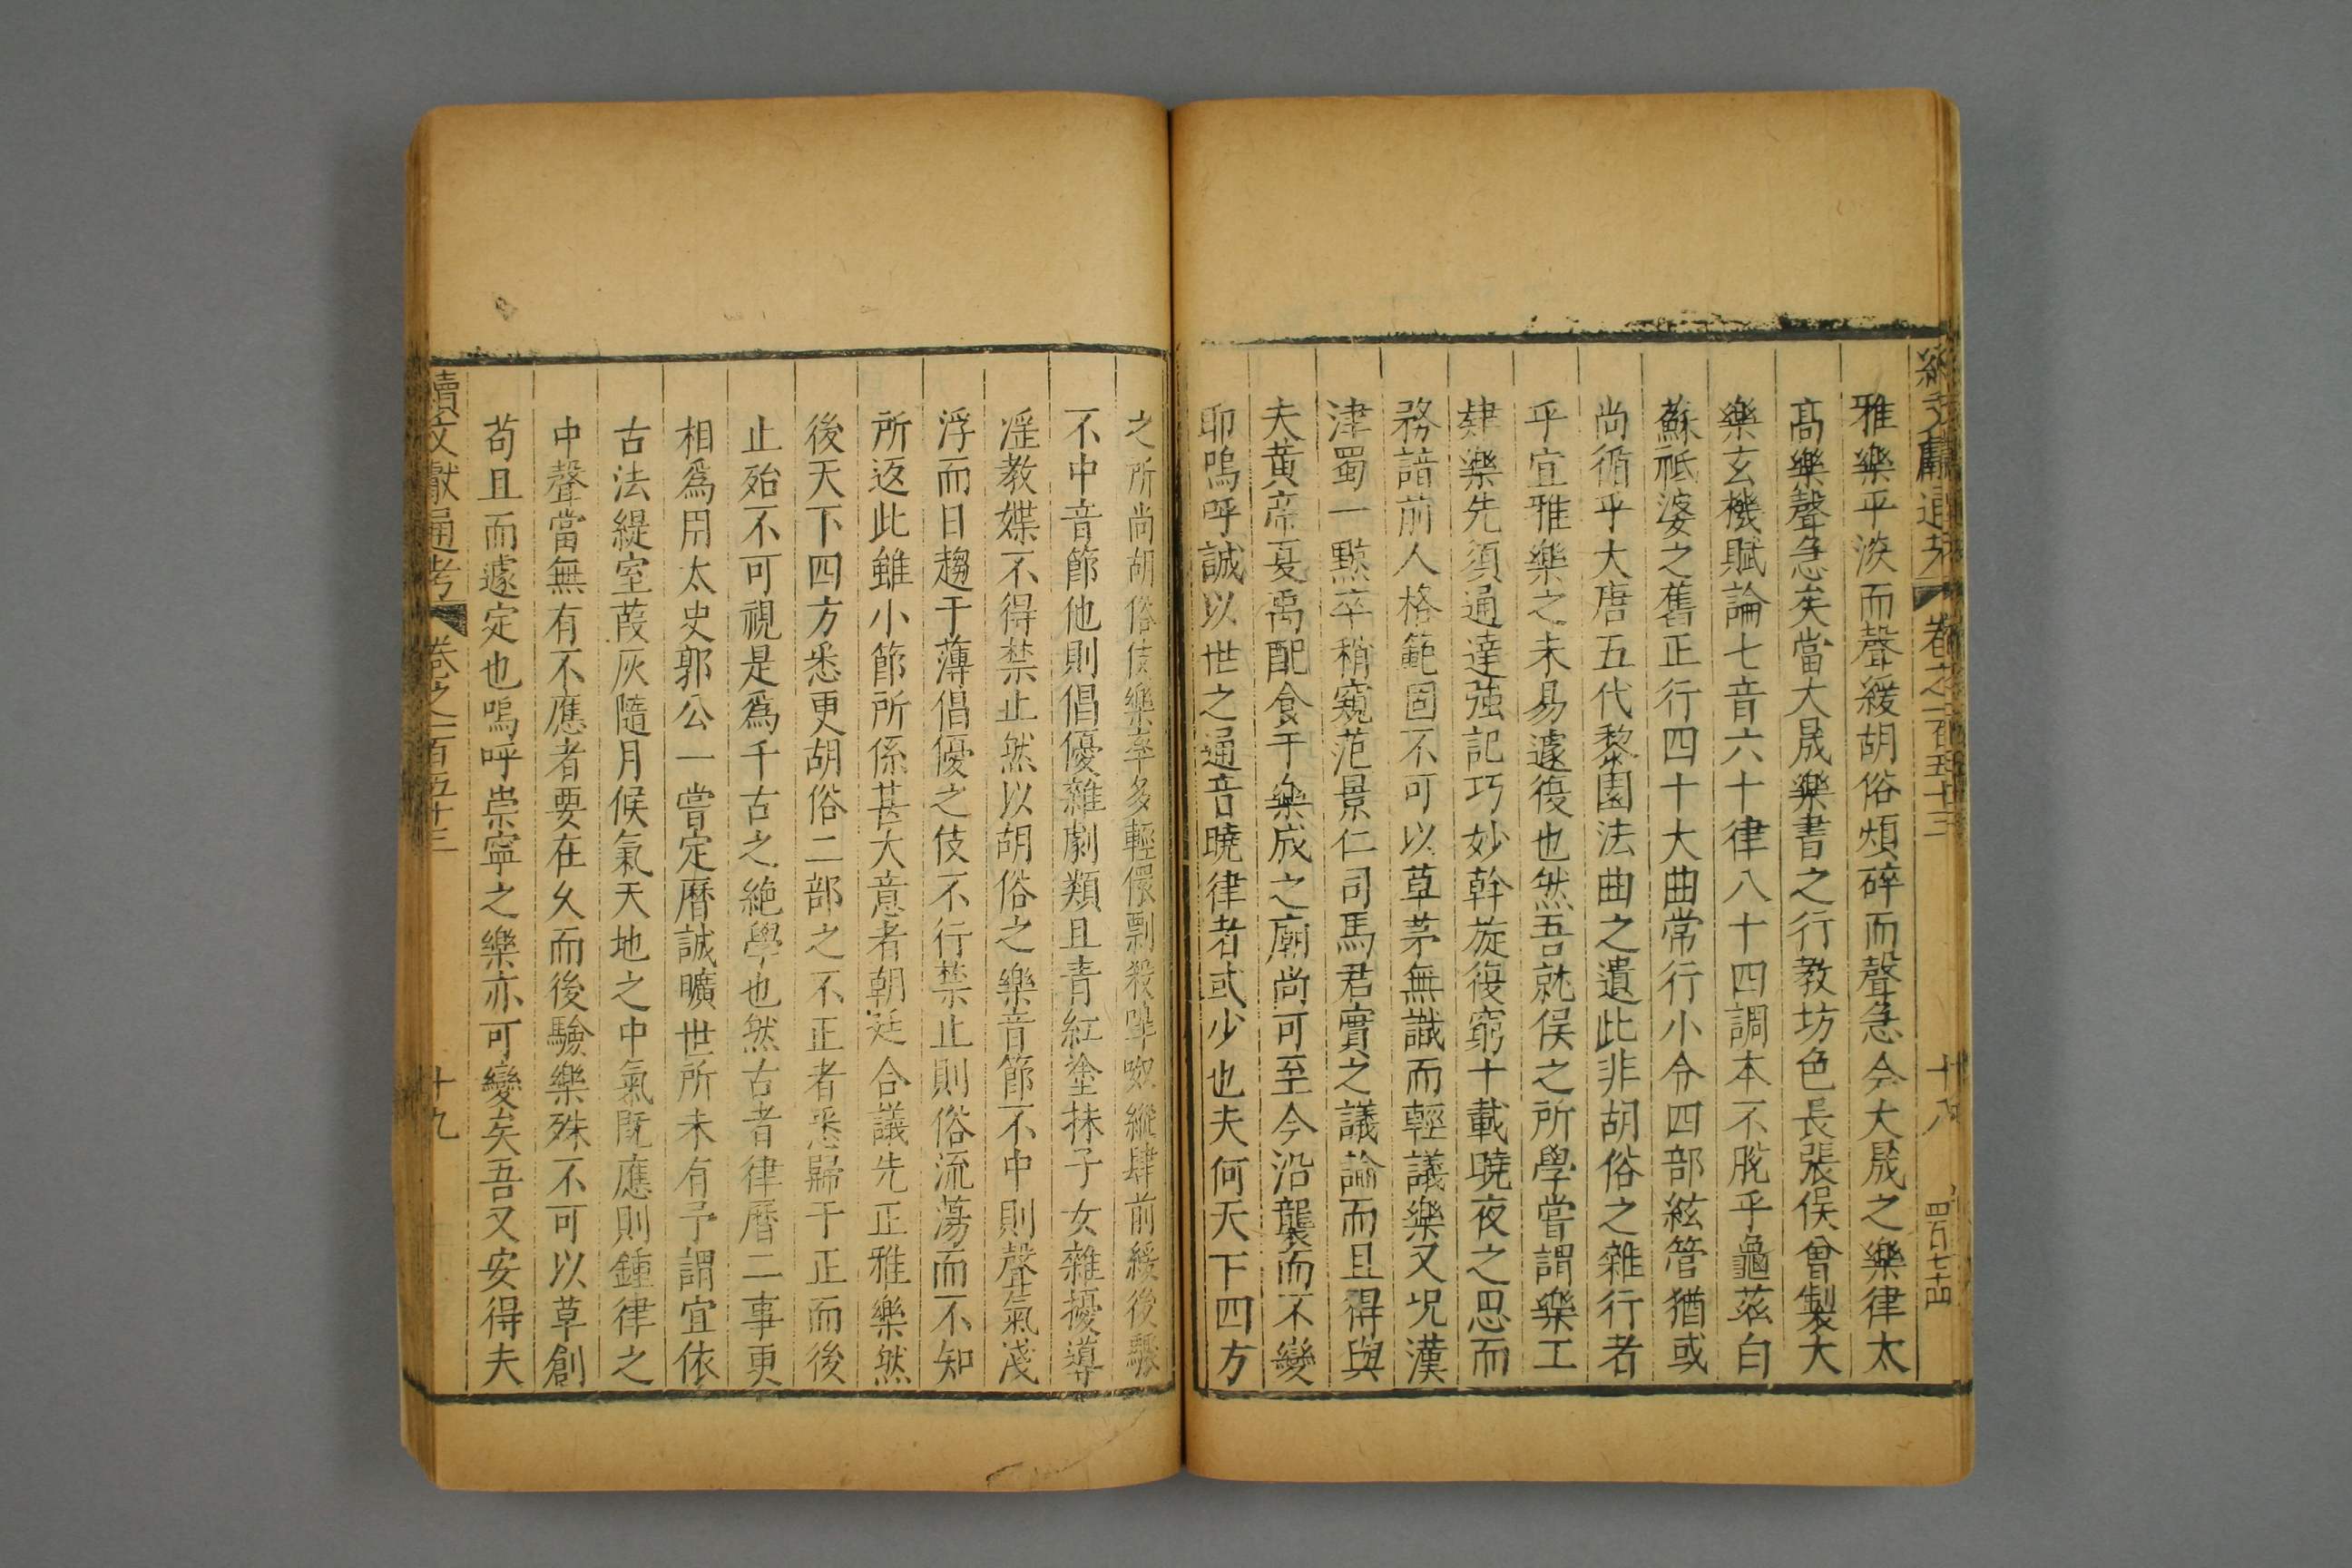 續文獻通考 卷之一百五十三 十八 四百七十四
雅樂平淡而聲緩胡俗煩碎而聲急今大晟之樂律太
髙樂聲急矣當大晟樂書之行教坊色長張俣曾製大
樂玄機賦論七音六十律八十四調本不脫乎龜茲白
蘇祗婆之舊正行四十大曲常行小令四部絃管猶或
尚循乎大唐五代黎園法曲之遺此非胡俗之雜行者
乎宜雅樂之未易遽復也然吾就俣之所學嘗謂樂工
肄樂先須通達強記巧妙幹旋復窮十載曉夜之思而
務諳前人格範固不可以草茅無識而輕議樂又況漢
津蜀一黥卒稍窺范景仁司馬君實之議論而且得與
夫黃帝夏禹配食于樂成之廟尚可至今沿襲而不變
耶嗚呼誠以世之通音曉律者或少也夫何天下四方
之所尚胡俗伎樂率多輕儇剽殺嘽呶縱肆前緩後驟
不中音節他則倡優雜劇類且青紅塗抹子女雜擾導
淫教媟不得禁止然以胡俗之樂音節不中則聲氣淺
浮而日趨于薄倡優之伎不行禁止則俗流蕩而不知
所返此雖小節所係甚大意者朝廷合議先正雅樂然
後天下四方悉更胡俗二部之不正者悉歸于正而後
止殆不可視是爲千古之絕學也然古者律曆二事更
相爲用太史郭公一嘗定曆誠曠世所未有予謂宜依
古法緹室葭灰隨月候氣天地之中氣既應則鍾律之
中聲當無有不應者要在久而後驗樂殊不可以草創
苟且而遽定也嗚呼崇寧之樂亦可變矣吾又安得夫
續文獻通考 卷之一百五十三 十九